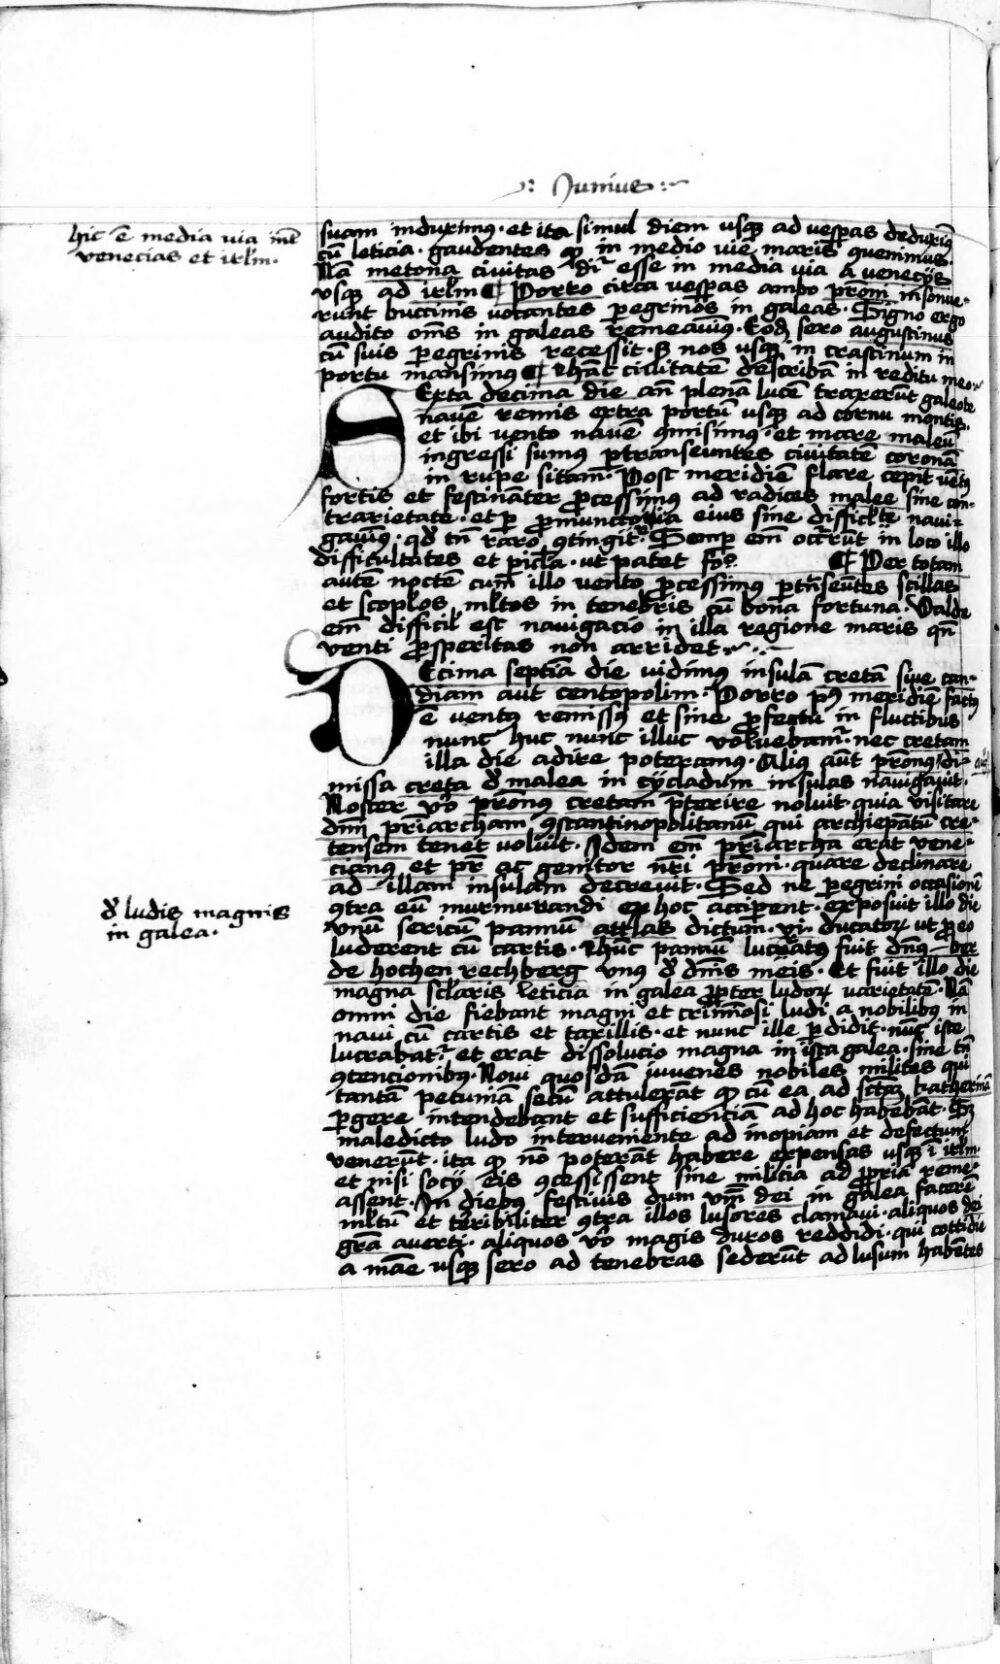 Junius
hic ē media via int̄
venecias et irl̄m.
suam induximus. et ita simul diem usqꝫ ad vesperas deduximꝰ
cū leticia. gaudentes qꝙ in medio vie maris quenimus.
Nā metona civitas dr̄ esse in media via a venecijs
usqꝫ ad irl̄m ¶ Porro circa vesperas ambo pr̄oni insonue-
runt buccinis vocantes peregrinos in galeas. Signo ergo
audito om̄s in galeas remeavimꝰ. Eodē sero augustinus
cū suis peregrinis recessit. sꝫ nos usqꝫ in crastinum in
portu mansimus ¶ ⁊ hāc civitatē describā in reditu meo
SExta decima die an̄ plenā lucē traxerūt galeote
navē remis extra portū usqꝫ ad cornu montis.
et ibi vento navē ꝯmisimus. et mare maleū
ingressi sumus ꝑtranseuntes civitatē coronā
in rupe sitam. Post meridiē flare cepit vētꝰ
fortis et festināter ꝓcessimꝰ ad radices malee sine con-
trarietate. et ꝑ ꝓmunctoria eius sine difficlte navi-
gavimꝰ. qd̄ tn̄ raro ꝯtingit. Semꝑ em̄ occr̄rūt in loco illo
difficultates et picl̄a. ut patet fo. ¶ Per totam
autē noctē cum illo vento ꝓcessimꝰ ꝑtn̄seūtes scillas
et scopl̄os ml̄tos in tenebris cū bona fortuna. Valde
em̄ difficil̄ est navigacio in illa regione maris qn̄
venti ꝓsperitas non arridet
DEcima septīa die vidimꝰ insulā cretā sive can-
diam aut centopolim. Porro pꝰ meridiē factꝰ
ē ventꝰ remissꝰ et sine ꝓfectu in fluctibus
nunc huc nunc illuc volvebam̄. nec cretam
illa die adire poteramꝰ. Aliꝰ aūt pr̄onꝰ di-
missa creta d̄ malea in cycladum insulas navigavit.
Noster v̄o pr̄onꝰ cretam p̄terire noluit quia visitare
dn̄m pr̄iarcham ꝯstantinopolitanū qui archiepātū cre-
tensem tenet voluit. Idem em̄ pr̄iarcha erat vene-
cianꝰ et pr̄ ac genitor nr̄i pr̄oni. quare declinare
ad illam insulam decrevit. Sed ne peregrini occasionē
ꝯtra eū murmurandi ex hoc acciperent. exposuit illo die
d̄ ludis magnis
in galea.
unū sericū pannū attlas dictum. vi. ducatoꝝ ut ꝓ eo
luderent cū cartis. ⁊ hūc pannū lucratꝰ fuit dn̄ꝰ ber
de hochen rechberg unꝰ d̄ dn̄is meis. Et fuit illo die
magna scl̄aris leticia in galea ꝓpter ludoꝝ varietatē. Nā
omni die fiebant magni et crimīosi ludi a nobilibꝰ in
navi cū cartis et taxillis. et nunc ille ꝑdidit. nūc iste
lucrabat. et erat dissolucio magna in ista galea. sine tn̄
ꝯtencionibꝰ. Novi quosdā iuvenes nobiles milites qui
tantā pecuniā secū attulerāt qꝙ cū ea ad sctā katherinā
pergere intendebant et sufficienciā ad hoc habebāt. Sꝫ
maledicto ludo interveniente ad inopiam et defectum
venerūt. ita qꝙ nō poterāt habere expensas usqꝫ ī irl̄m.
et nisi socij eis ꝯcessissent sine milicia ad ꝓpria reme-
assent. In diebꝰ festivis dum vm̄ dei in galea facerē
ml̄tū et teribiliter ꝯtra illos lusores clamavi. aliquos dei
grā averti. aliquos v̄o magis duros reddidi. qui cottidie
a māe usqꝫ sero ad tenebras sederūt ad lusum habētes